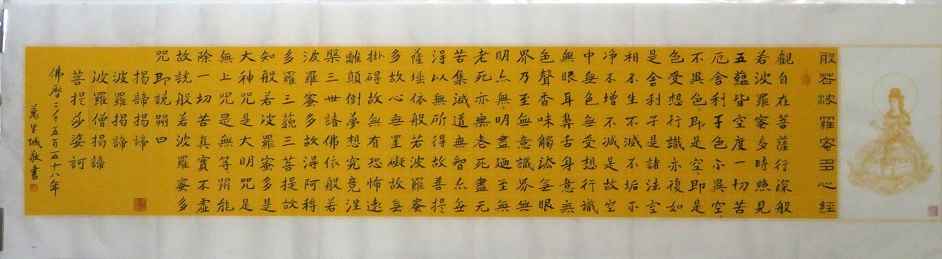 般若波羅蜜多心經
觀自在菩薩行深般
若波羅蜜多時照見
五蘊皆空度一切苦
厄舍利子色不異空
不異色空即是
色受想行識亦復如
是舍利子是諸法空
相不生不滅不垢不
淨不增不減是故空
中無色無受想行識
無眼耳鼻舌身意無
色聲香味觸法無眼
界乃至無意識界無
明亦無明盡廼至無
老死亦無老死盡無
苦集滅道無智亦無
得以無所得故菩提
薩埵依般若波羅蜜
多故心無罣礙故無
掛碍故無有恐怖遠
離顛倒夢想究竟涅
槃三世諸佛依般若
波羅蜜多故得阿耨
多羅三藐三菩提故
知般若波羅蜜多是
大神咒是大明咒是
無上咒是無等咒能
除一切苦真實不虛
故說般若波羅蜜多
咒即說咒曰
揭諦揭諦
波羅揭諦
波羅僧揭諦
菩提莎婆訶
佛曆二千五百五十八年
萬里城敬書